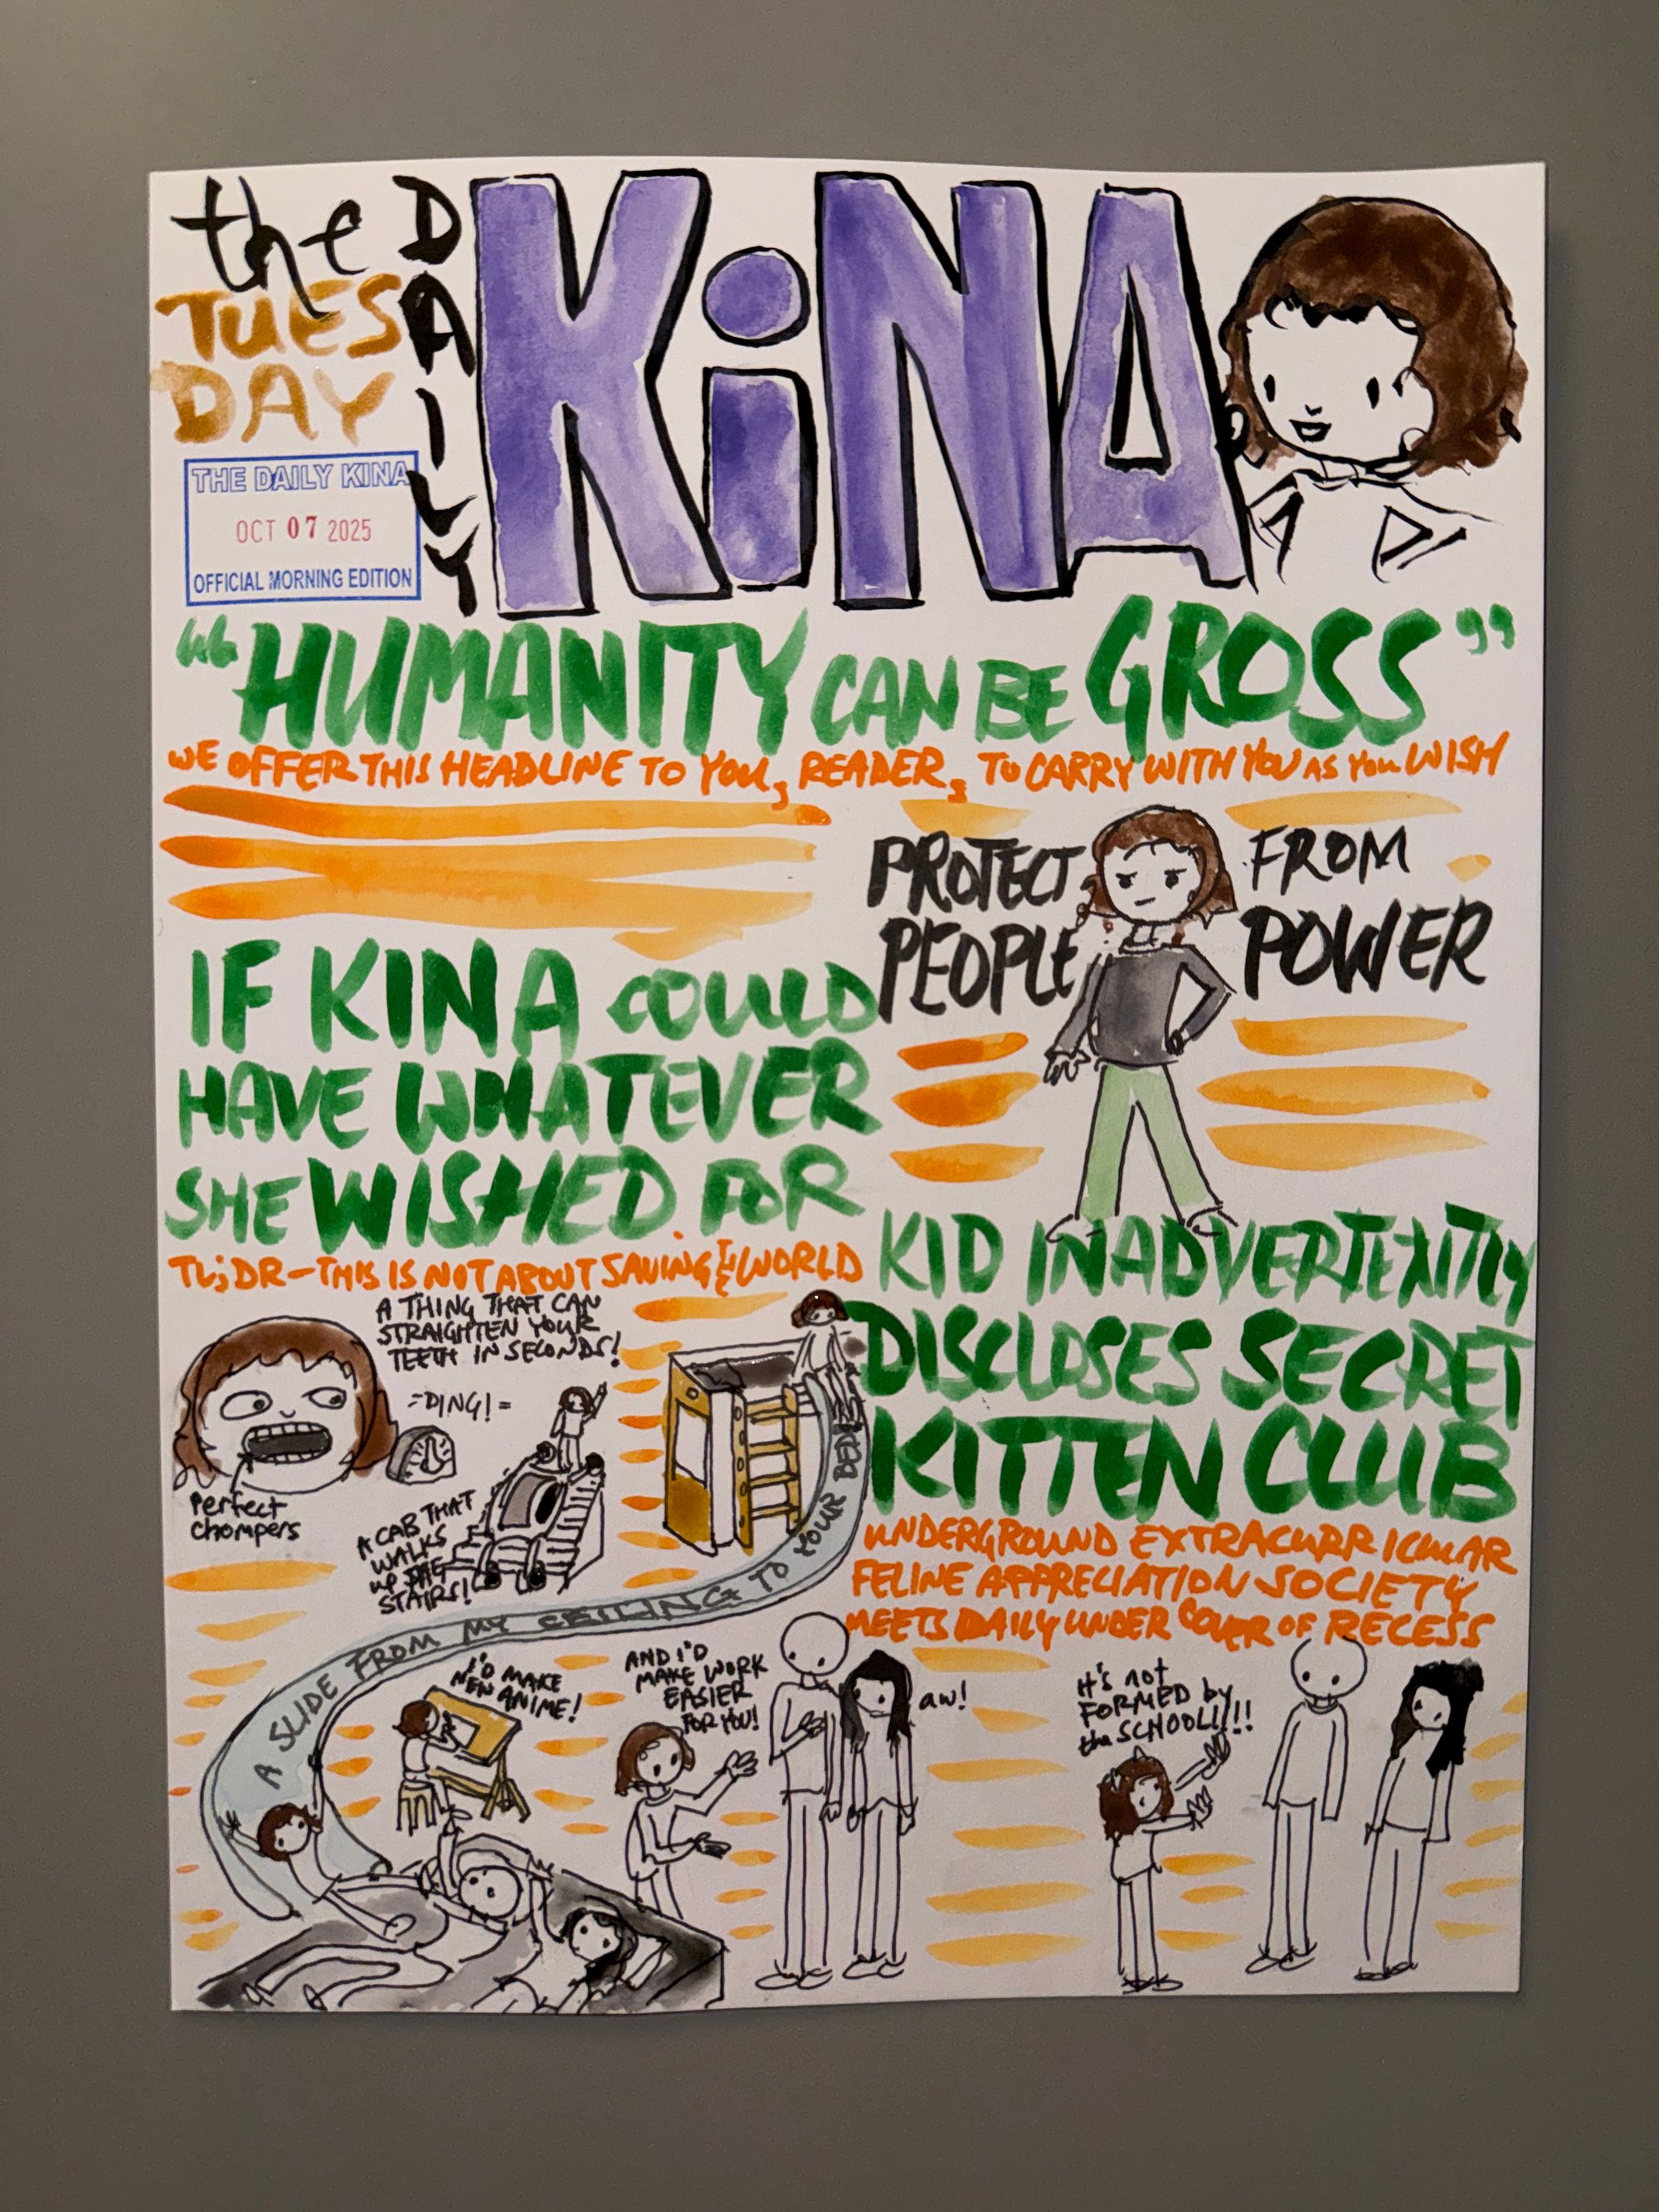 the
DAILY
KiNA
TUES
DAY
THE DAILY KINA
OCT 07 2025
OFFICIAL MORNING EDITION
"HUMANITY CAN BE GROSS"
WE OFFER THIS HEADLINE TO YOU, READER, TO CARRY WITH YOU AS YOU WISH
PROTECT
PEOPLE
FROM
POWER
IF KINA COULD
HAVE WHATEVER
SHE WISHED FOR
TL;DR-THIS IS NOT ABOUT SAVING THE WORLD
A THING THAT CAN
STRAIGHTEN YOUR
TEETH IN SECONDS!
=DING!=
Perfect
Chompers
A CAB THAT
WALKS
UP THE
STAIRS!
A SLIDE FROM MY CEILING TO YOUR BED
I'D MAKE
NEW ANIME!
AND I'D
MAKE WORK
EASIER
FOR YOU!
aw!
KID INADVERTENTLY
DISCLOSES SECRET
KITTEN CLUB
UNDERGROUND EXTRACURRICULAR
FELINE APPRECIATION SOCIETY
MEETS DAILY UNDER COVER OF RECESS
it's not
FORMED by
the SCHOOL!!!!